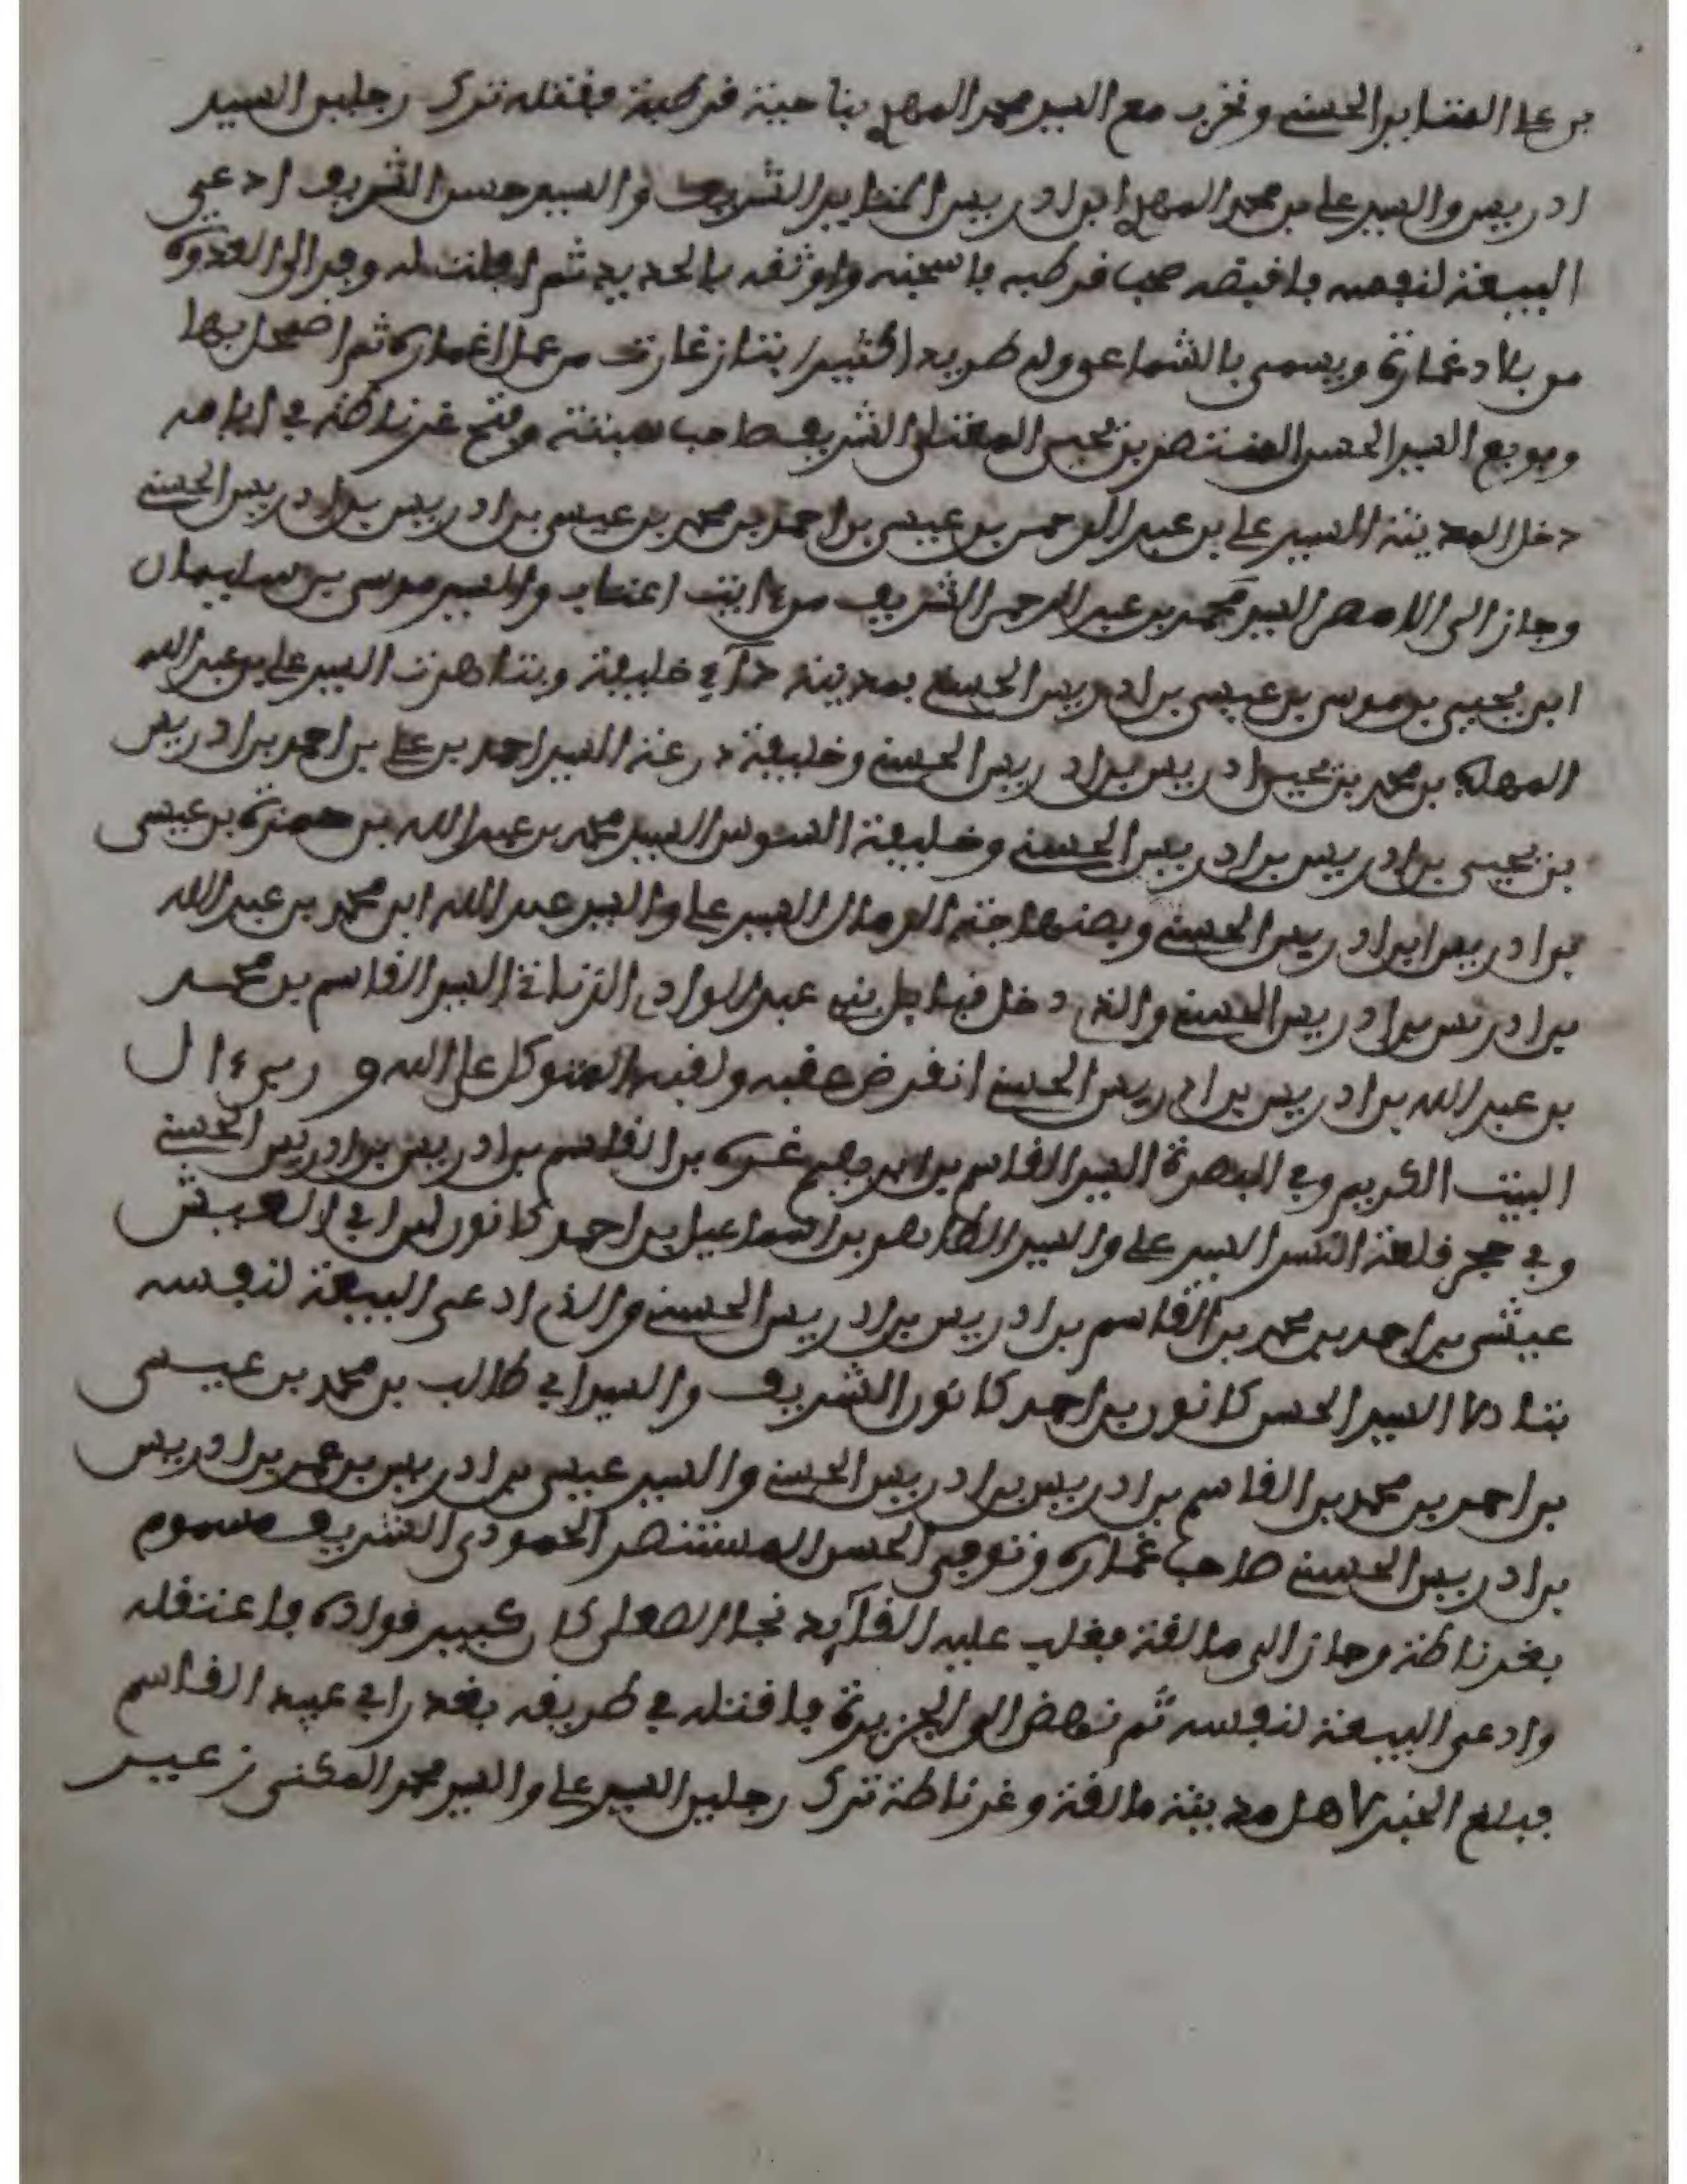 بن على المتايد الحسني وتغرب مع السيد محمد المهدي بناحية قرطبة فقتله ترك رجلين السيد
ادريس والسيد علي بن محمد المهدي ابن ادريس المتايد الشريف والسيد حسن الشريف ادعى
البيعة لنفسه فاقبضه صحب قرطبه فاسجنه واوثقه بالحديد ثم افلت له وفر الى العدوة
من بلاد غمارة ويسمى بالشماع وولد طريد الكثير بتازغارت من عمل اغمارة ثم اضمحل بها
وبويع السيد الحسن المستنصر بن يحيى المعتلي الشريف صاحب سبتة وفتح غرناطة في ايامه
دخل المدينة السيد علي بن عبد الرحمن بن عيسى بن احمد بن محمد بن عيسى بن ادريس بن ادريس الحسني
وجاز الى السيد محمد بن عبد الرحمن الشريف من ايت اعتاب والسيد موسى بن سليمان
ابن يحيى بن موسى بن عيسى بن ادريس الحسني بمدينة خليفة وبتاهرت السيد علي بن عبد الله
المهدي بن محمد بن يحيى ادريس بن ادريس الحسني وخليفة درعة السيد احمد بن علي بن احمد بن ادريس
بن يحيى بن ادريس بن ادريس الحسني وخليفة السوس السيد محمد بن عبد الله بن حمزة بن عيسى
بن ادريس ابن ادريس الحسني وبصنهاجة الرمال السيد علي والسيد عبد الله ابن محمد بن عبد الله
بن ادريس بن ادريس الحسني والذي دخل قبايل بني عبد الوادي الزناتة السيد القاسم بن محمد
بن عبد الله بن ادريس بن ادريس الحسني انقرض عقبه ولقبه المتوكل على الله و
البيت الكريم وفي البصرة السيد القاسم بن ابراهيم بن القاسم بن ادريس بن ادريس الحسني
وفي حجر قلعة النسر السيد علي والسيد بن اسماعيل بن احمد كانون ابن ابي العيش
عيشى بن احمد بن محمد بن القاسم بن ادريس بن ادريس الحسني والذي ادعى البيعة لنفسه
بتادلا السيد الحسن كانون بن احمد كانون الشريف والسيد ابي طالب بن محمد بن عيسى
بن احمد بن محمد بن القاسم بن ادريس بن ادريس الحسني والسيد عيسى بن ادريس بن عمر بن ادريس
بن ادريس الحسني صاحب غمارة وتوفى الحسن المستنصر الحمودي الشريف مسموم
بغرناطة وجاز الى مالقة فغلب عليه القآيد نجا الصقلي كان كبير قواده فاعتقله
وادعى البيعة لنفسه ثم نهض الى الجزيرة فاقتله في طريقه بغدر ابي عبيد القاسم
فبلغ الخبر لاهل مدينة مالقة وغرناطة ترك رجلين السيد علي والسيد محمد المكنى زعيبر